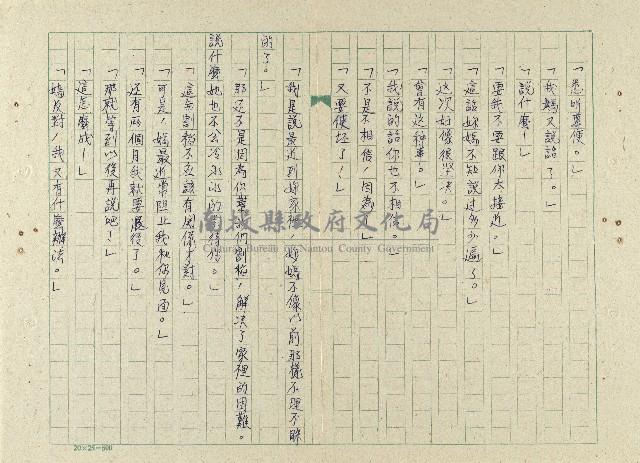 「悉听尊便。」
「我媽又說話了。」
「說什麼!」
「要我不要跟你太接近。」
「這話妳媽不知說过多少遍了。」
「这次好像很坚决。」
「會有这种事。」
「我說的話你也不相。」
「不是不相信!因為」
「又要使坏了!」
「我是說最近到妳家裡,妳媽不像以前那樣不理不睬
的了。」
「那还不是因為你幫我們割稻!解决了家裡的困難。
說什麼她也不会冷冰冰的對待你。」
「這和割稻不应該有関係才對。」
「可是!媽最近常阻止我和你見面。」
「还有兩個月我就要退役了。」
「那就等到以後再說吧!」
「這怎麼成!」
「媽反對!我又有什麼辦法。」
南投縣政府文化局
Cultural Bureau of Nantou County Government
20×25=500